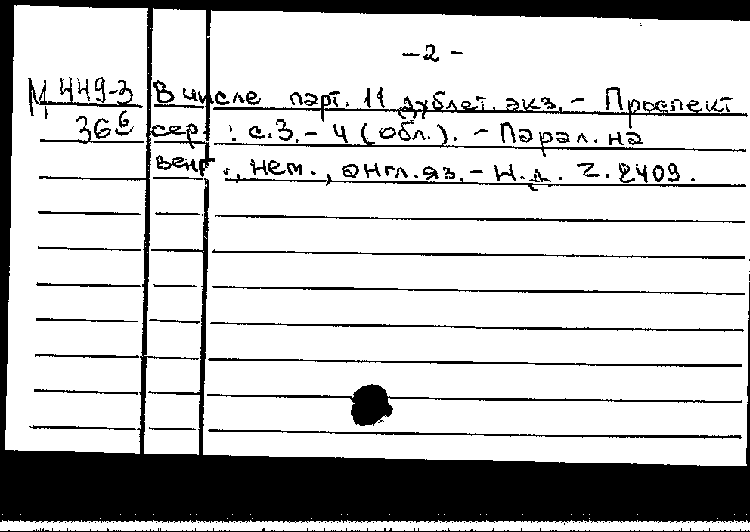 – 2 –
М 449-3 В числе парт. 11 дублет. экз. – Проспект
36б сер.: с.3. – 4 (обл.). – Парал. на
венг., нем., англ. яз. – Н.д. Z. 2409.